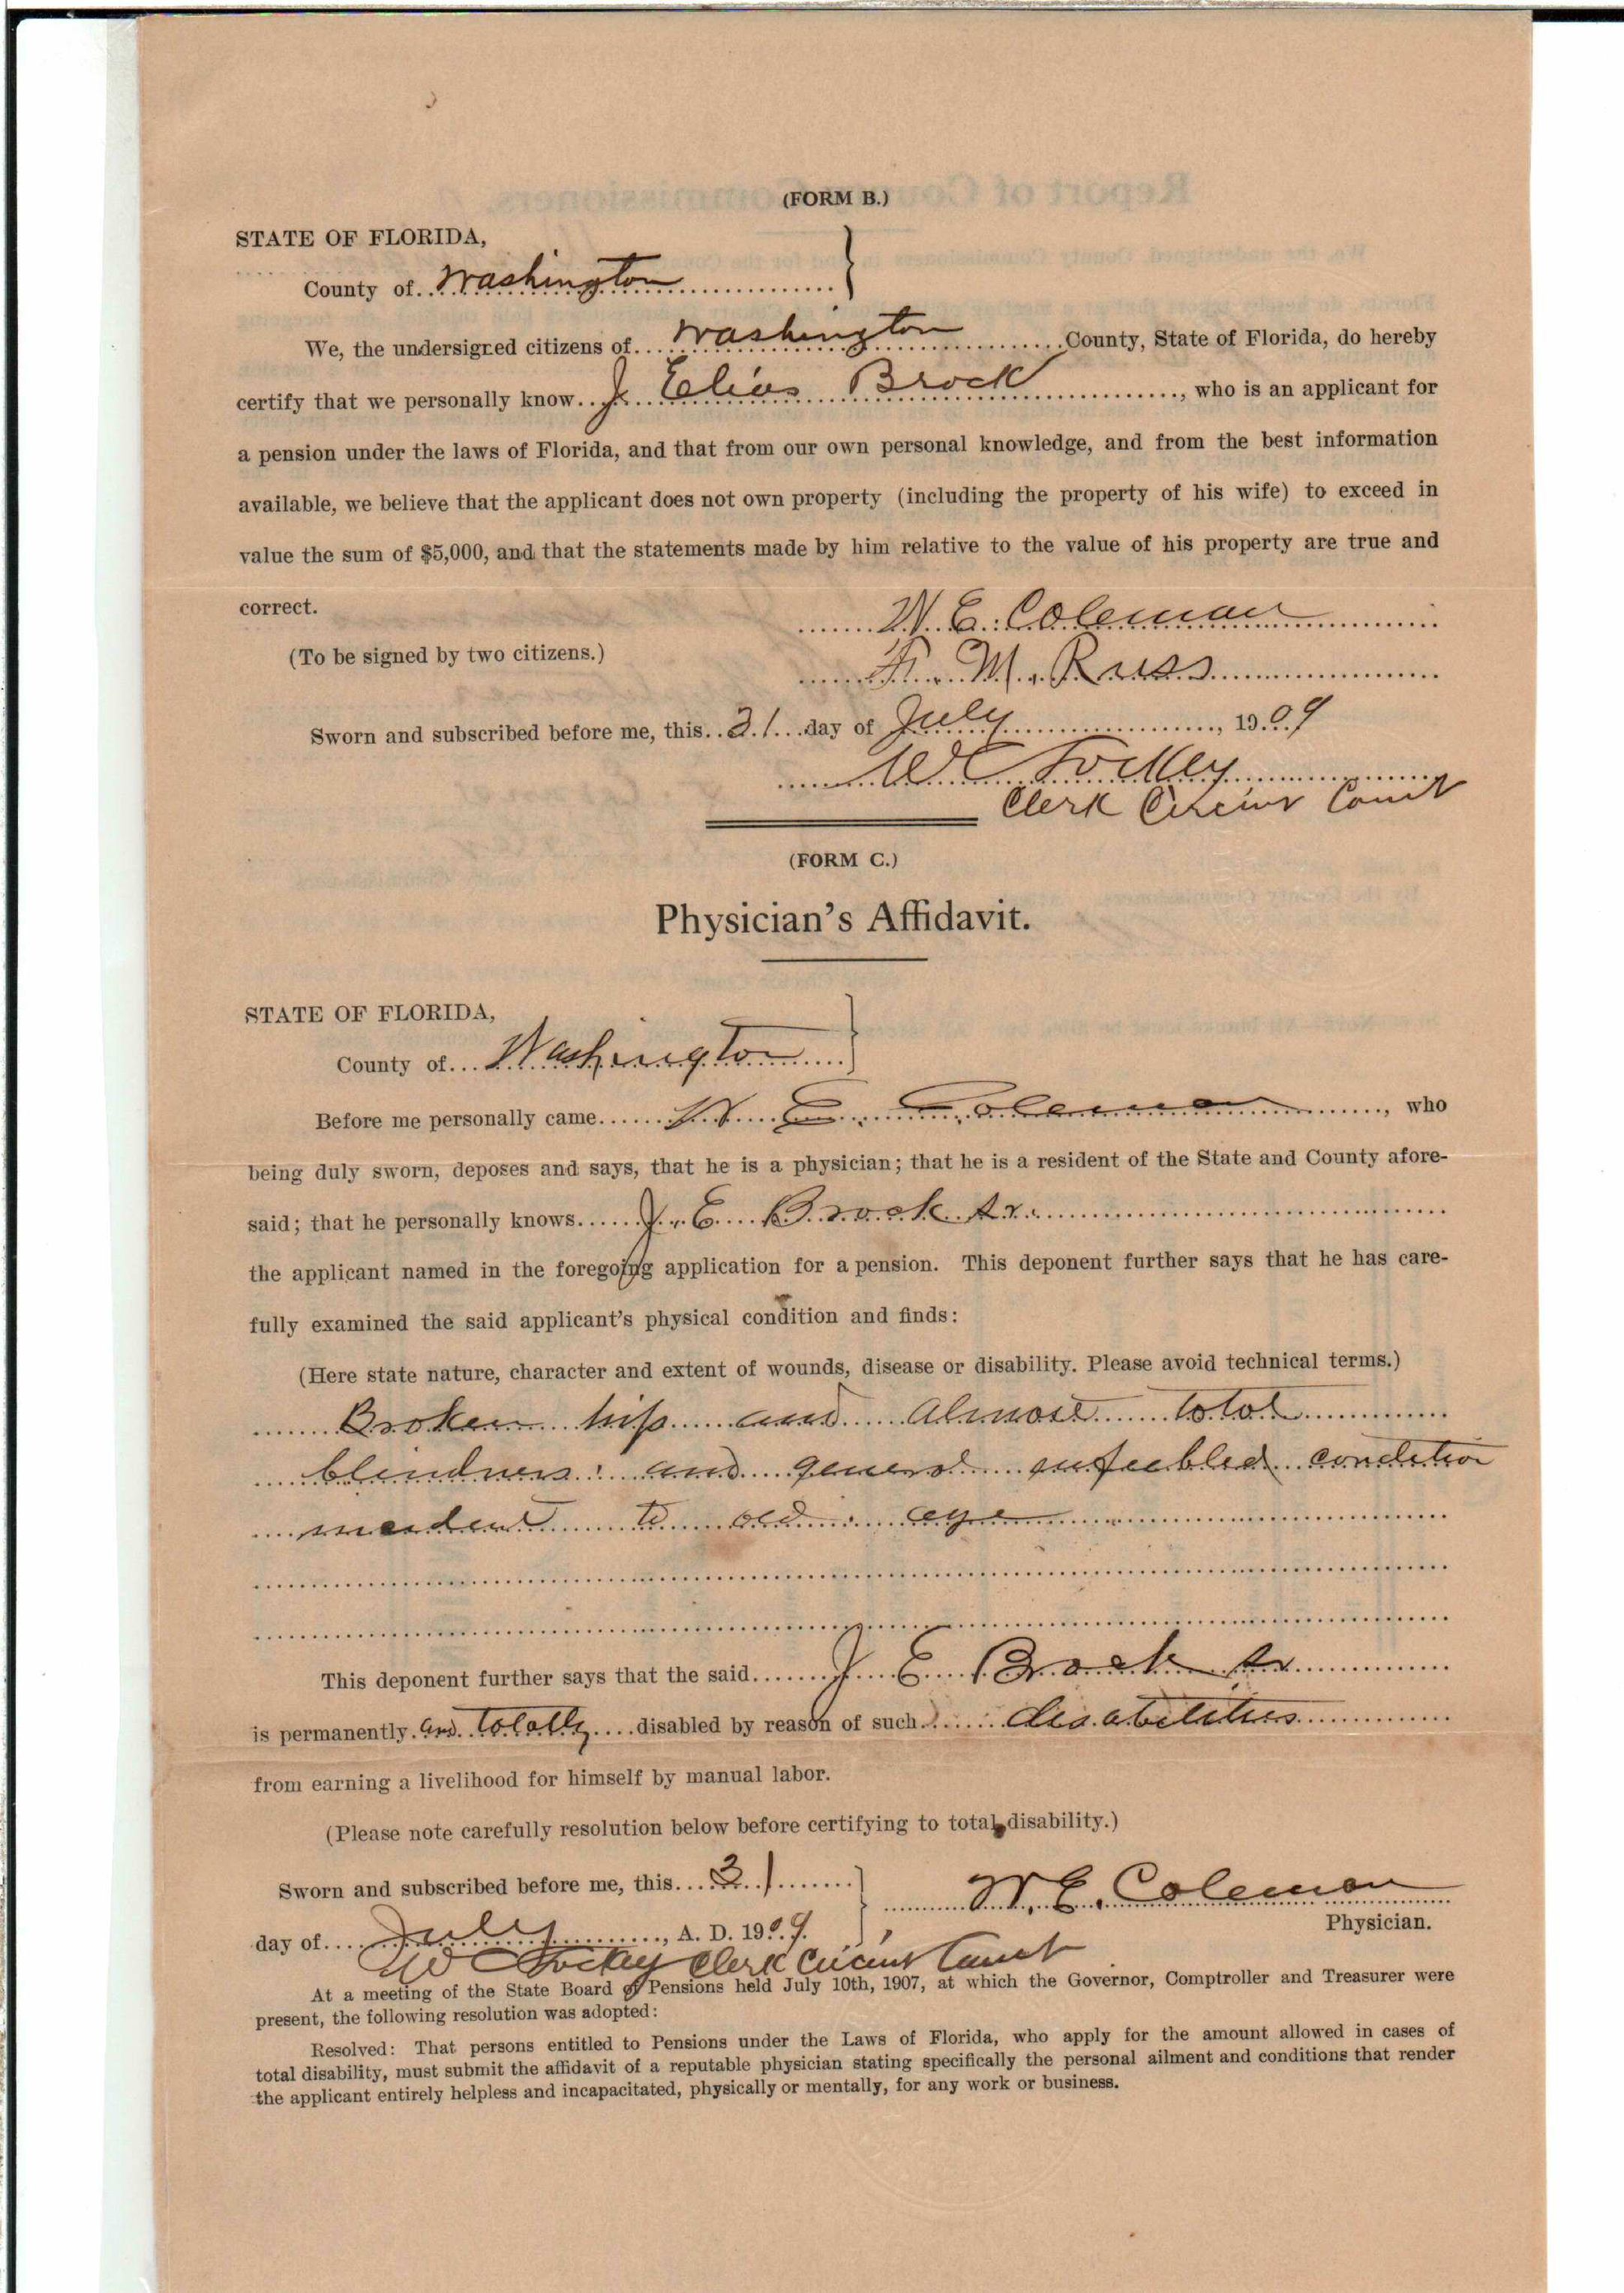 (FORM B.)
STATE OF FLORIDA,
County of Washington
We, the undersigned citizens of Washington County, State of Florida, do hereby
certify that we personally know J. Elias Brock, who is an applicant for
a pension under the laws of Florida, and that from our own personal knowledge, and from the best information
available, we believe that the applicant does not own property (including the property of his wife) to exceed in
value the sum of $5,000, and that the statements made by him relative to the value of his property are true and
correct.
W. E. Coleman
(To be signed by two citizens.)
M. Russ
Sworn and subscribed before me, this 31 day of July, 1909
W C Lockey
Clerk Circuit Court
(FORM C.)
Physician's Affidavit.
STATE OF FLORIDA,
County of Washington
Before me personally came W. E. Coleman, who
being duly sworn, deposes and says, that he is a physician; that he is a resident of the State and County afore-
said; that he personally knows J. E. Brock Sr.
the applicant named in the foregoing application for a pension. This deponent further says that he has care-
fully examined the said applicant's physical condition and finds:
(Here state nature, character and extent of wounds, disease or disability. Please avoid technical terms.)
Broken hip and almost total
blindness and general enfeebled condition
incident to old age
This deponent further says that the said J E Brock Sr
is permanently and totally disabled by reason of such disabilities
from earning a livelihood for himself by manual labor.
(Please note carefully resolution below before certifying to total disability.)
Sworn and subscribed before me, this 31
W. E. Coleman
Physician.
day of July, A. D. 1909.
W C Lockey Clerk Circuit Court
At a meeting of the State Board of Pensions held July 10th, 1907, at which the Governor, Comptroller and Treasurer were
present, the following resolution was adopted:
Resolved: That persons entitled to Pensions under the Laws of Florida, who apply for the amount allowed in cases of
total disability, must submit the affidavit of a reputable physician stating specifically the personal ailment and conditions that render
the applicant entirely helpless and incapacitated, physically or mentally, for any work or business.